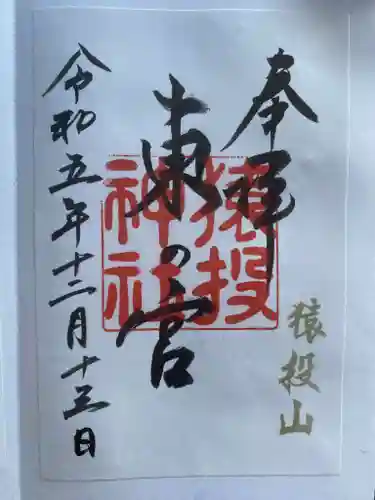 奉拝
猿投山
東の宮
猿投神社
令和五年十二月十三日